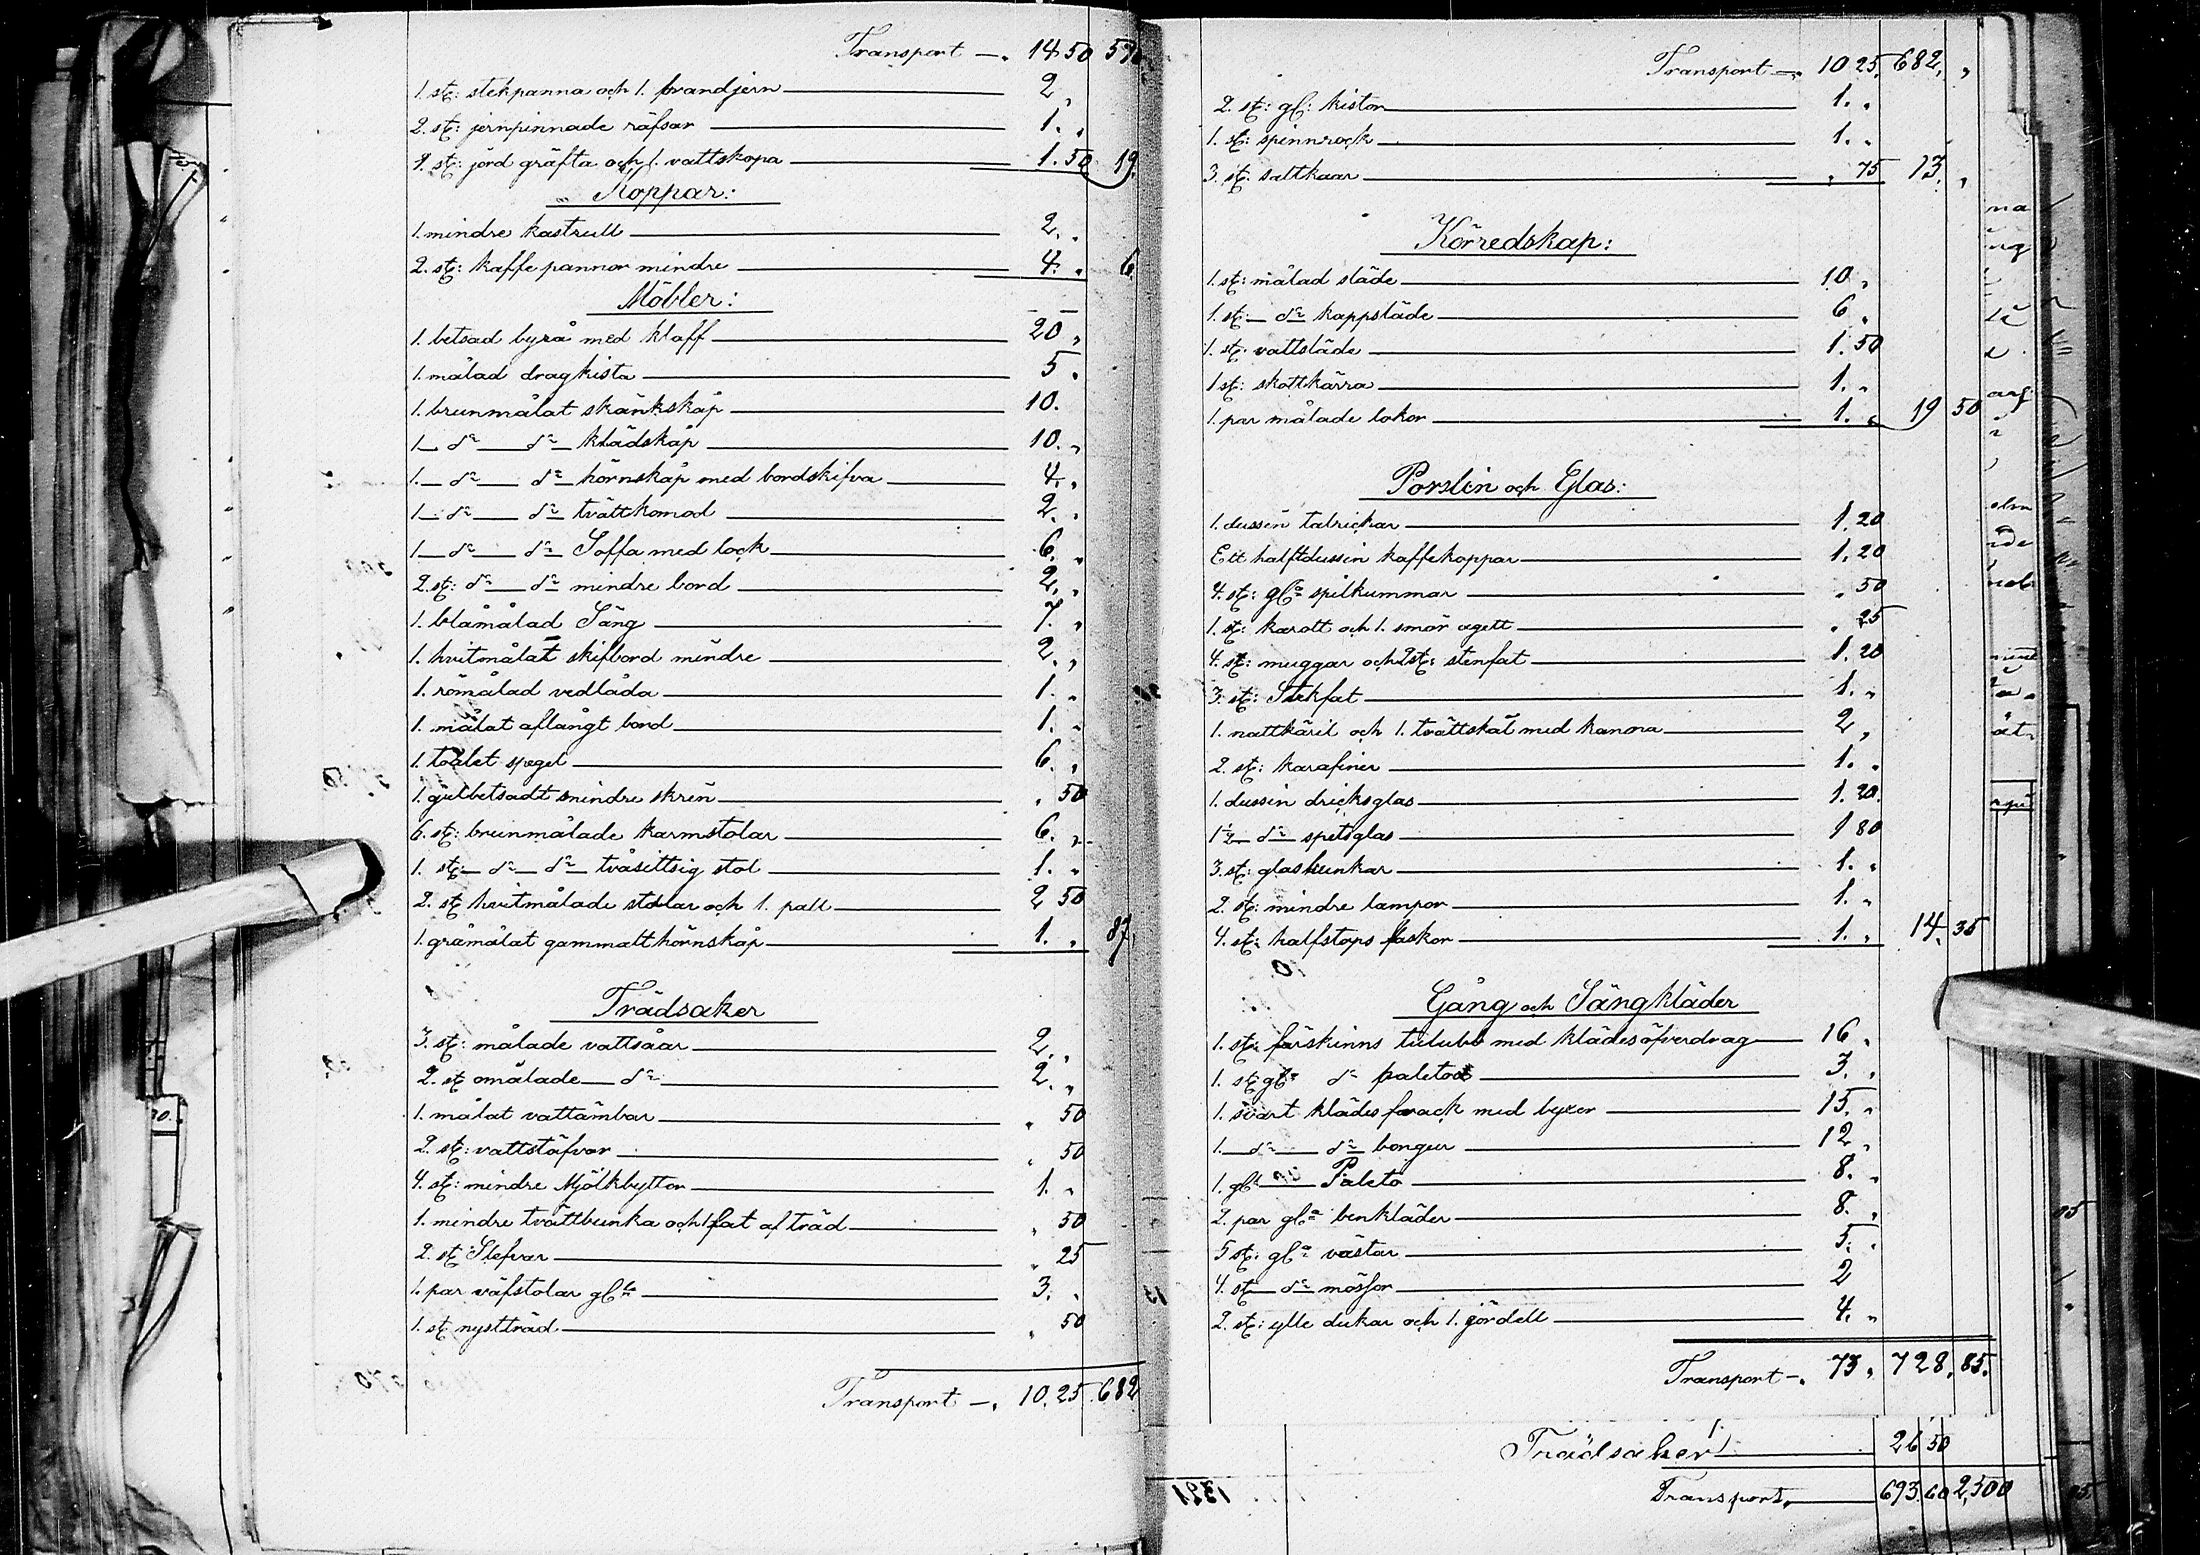 Transport —. 14 50 57
1. st: stekpanna och 1. brandjern — 2 „
2. st: jernpinnade räfsor — 1. „
1. st: jord gräfta och 1. vattskopa — 1. 50 19.
„ Koppar:
1. mindre kastrull — 2. „
2. st: kaffe pannor mindre — 4. „ 6.
Möbler:
1. betsad byrå med klaff — 20 „
1. målad dragkista — 5 „
1. brunmålat skänkskåp — 10.
1 — do — do — klädskåp — 10. „
1. — do — do — hörnskåp med bordskifva — 4. „
1 — do — do — tvättkomod — 2. „
1 — do — do — Soffa med lock — 6. „
2. st: do — do — mindre bord — 2. „
1. blåmålad Säng — 7. „
1. hvitmålat skifbord mindre — 2. „
1. römålad vedlåda — 1. „
1. målat aflångt bord — 1. „
1. toalet spegel — 6. „
1. gulbetsadt mindre skrin — „ 50
6. st: brunmålade karmstolar — 6. „
1. st: — do — do — tvåsittsig stol — 1. „
2. st hvitmålade stolar och 1. pall — 2 50
1. gråmålat gammalt hörnskåp — 1. „ 87,
Trädsaker
3. st: målade vattsåar — 2. „
2. st omålade — do — 2. „
1. målat vattämbar — „ 50
2. st: vattstäfvor — „ 50
4. st: mindre Mjölkbyttor — 1. „
1. mindre tvättbunka och 1 fat af träd — „ 50
2. st Slefvar — „ 25
1. par väfstolar gla — 3. „
1. st nystträd — „ 50
Transport —. 10. 25. 682
Transport —. 10 25. 682. „
2. st: gl: kistor — 1. „
1. st: spinnrock — 1. „
3. st: saltkaar — „ 75 13. „
Körredskap:
1. st: målad släde — 10 „
1. st: — do — kappsläde — 6 „
1. st: vattsläde — 1. 50
1 st: skottkärra — 1. „
1. par målade lokor — 1. „ 19 50
Porslin och Glas:
1. dussin talrickar — 1. 20
Ett halftdussin kaffekoppar — 1. 20
4. st: gla spilkummar — „ 50
1. st: karott och 1. smör agett — „ 25
4. st: muggar och 2 st: stenfat — 1. 20
3. st: Stekfat — 1. „
1. nattkäril och 1. tvättskål med kanna — 2 „
2. st: karafiner — 1. „
1. dussin dricksglas — 1. 20.
1 1/2 — do — spetsglas — 1 80
3. st: glasbunkar — 1. „
2. st: mindre lampor — 1. „
4. st: halfstops flaskor — 1. „ 14. 35
Gång och Sängkläder
1. st: fårskinns tulubb med klädesöfverdrag — 16 „
1. st gla do paletot — 3. „
1. svart klädes frack med byxor — 15. „
1. — do — do — bongur — 12 „
1. gl: — do — Paleto — 8. „
2. par gla benkläder — 8. „
5 st: gla västar — 5. „
4. st — do — mössor — 2
2. st: ylle dukar och 1. gördell — 4. „
Transport —. 73. 728. 85.
Trädsaker — 26 50
Transport. — 693 60 2,500